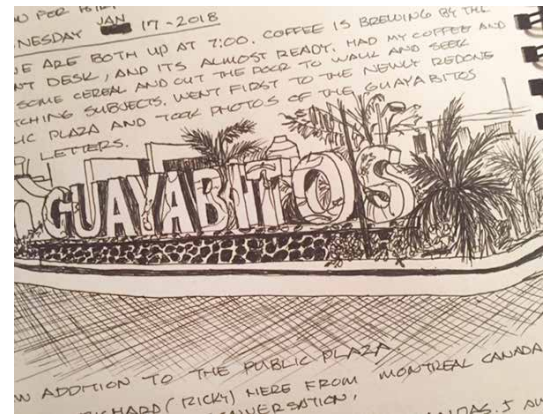 PER
NESDAY JAN 17-2018
E ARE BOTH UP AT 7:00. COFFEE IS BREWING BY THE
NT DESK, AND ITS ALMOST READY. HAD MY COFFEE AND
SOME CEREAL AND OUT THE DOOR TO WALK AND SEEK
TCHING SUBJECTS. WENT FIRST TO THE NEWLY REDONE
LIC PLAZA AND TOOK PHOTOS OF THE GUAYABITOS
LETTERS.
GUAYABITOS
W ADDITION TO THE PUBLIC PLAZA.
RICHARD (RICKY) HERE FROM MONTREAL CANADA
NVERSATION,